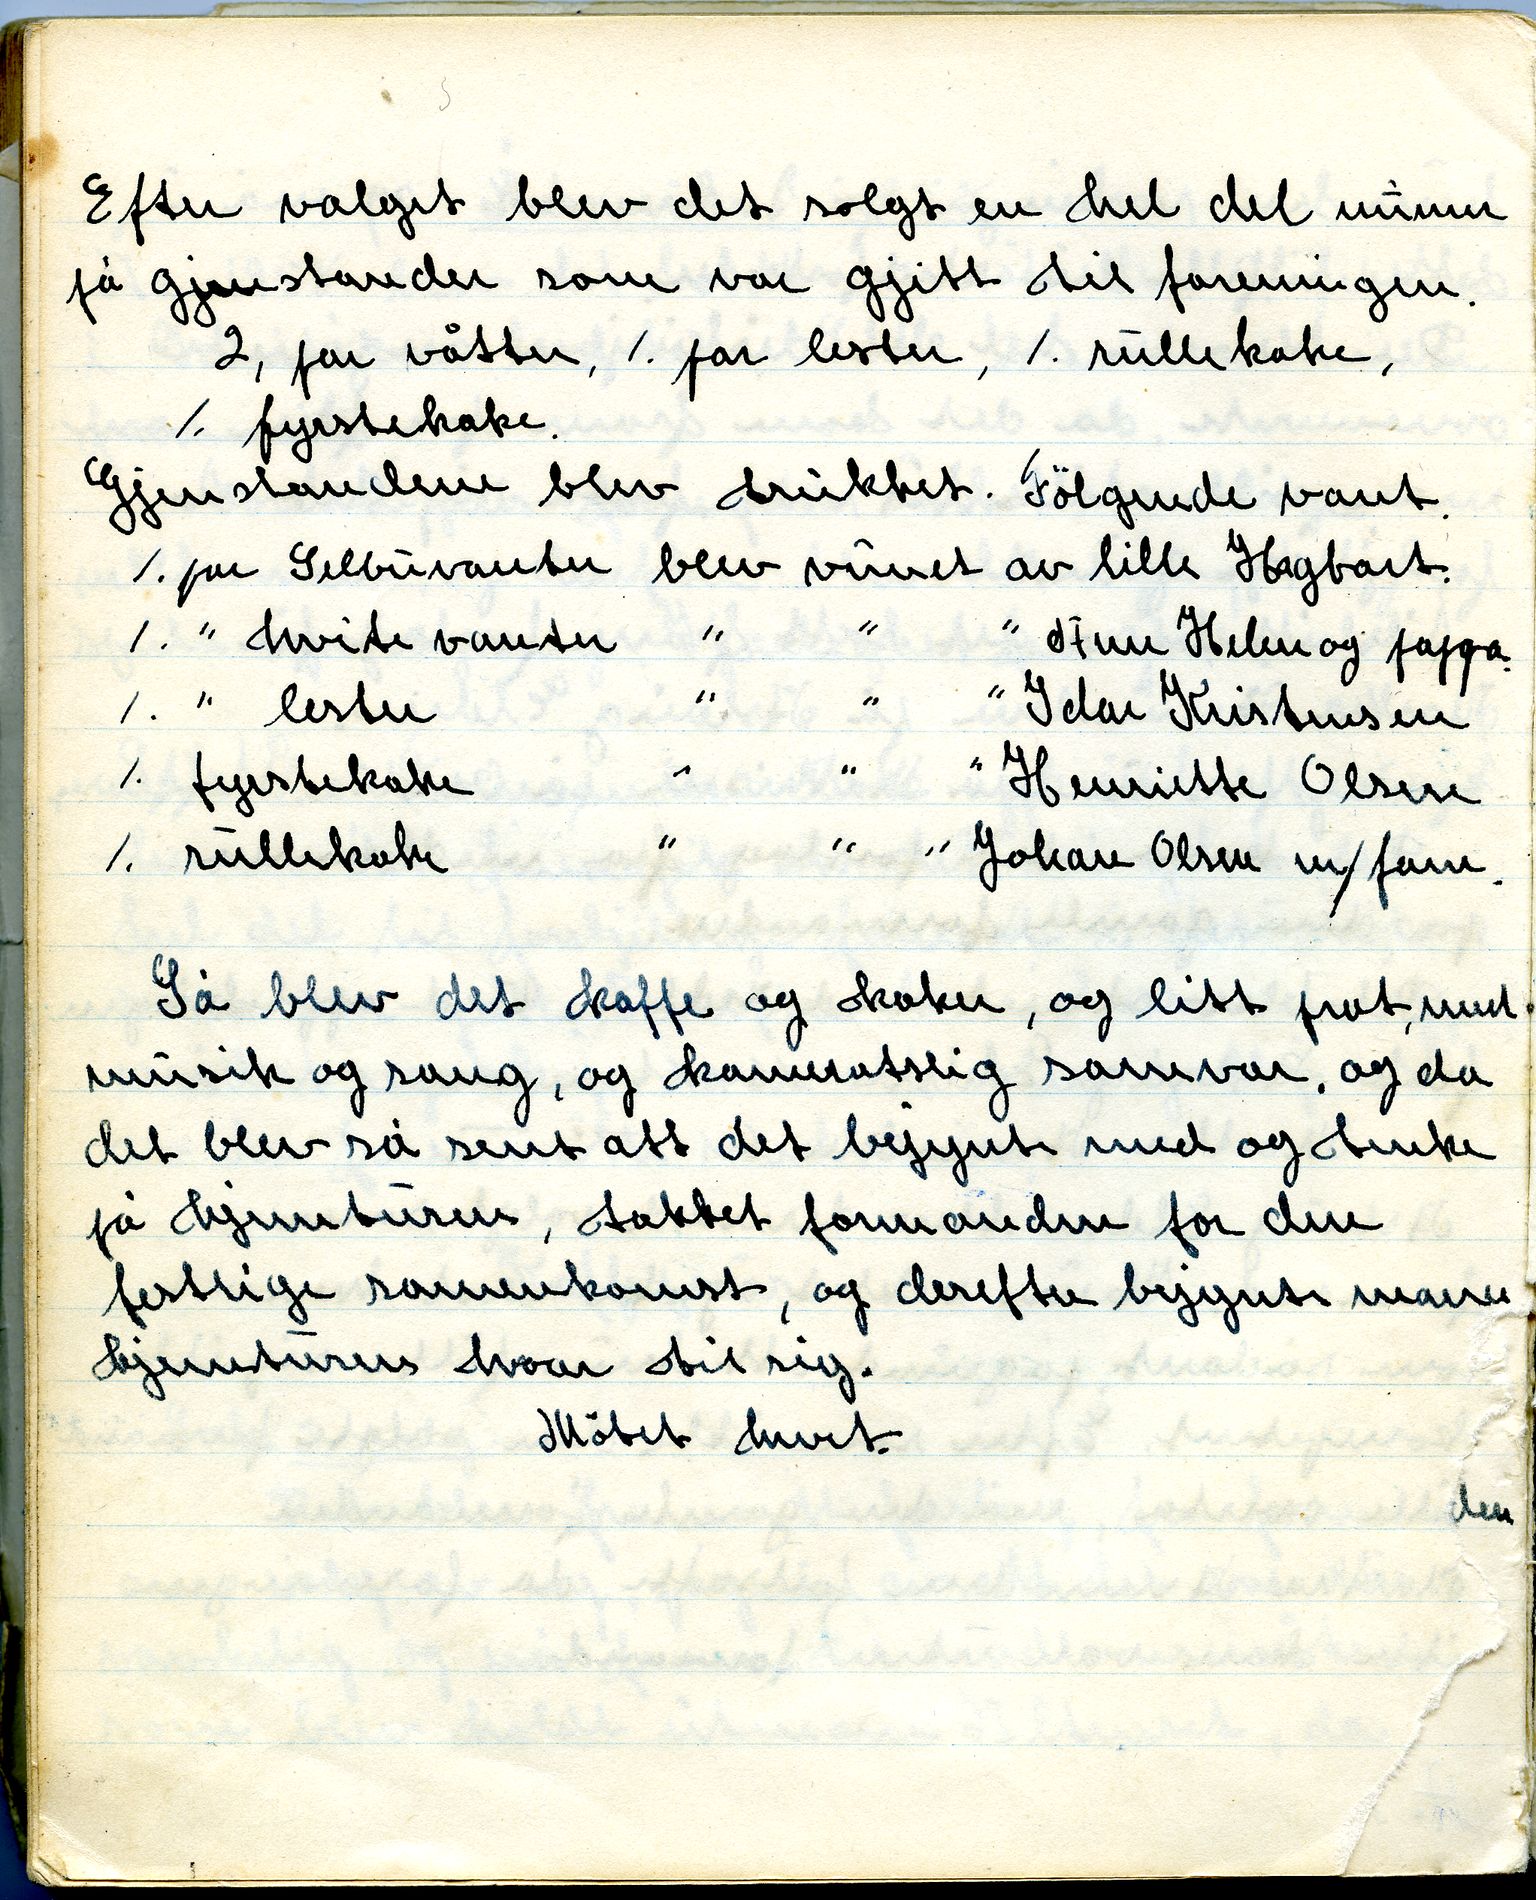 Efter valget blev det solgt en hel del numer
på gjenstander som var gjitt til foreningen.
2, par våtter, 1. par lester, 1. rullekake,
1. fyrstekake.
Gjenstandene blev trukket. Følgende vant.
1. par Selbuvanter blev vunet av lille Hagbart.
1. " hvite vanter " " " Ann Helen og pappa.
1. " lester " " " Idar Kristensen
1. fyrstekake " " " Henriette Olsen
1. rullekake " " " Johan Olsen m/fam.
Så blev det kaffe og kaker, og litt prat, med
musik og sang, og kameratslig samvær, og da
det blev så sent att det bejynte med og tenke
på hjemturen, takket formanden for den
festlige samenkomst, og derefter bejynte mann
hjemturen hvær til sig.
Møtet hevet.
den